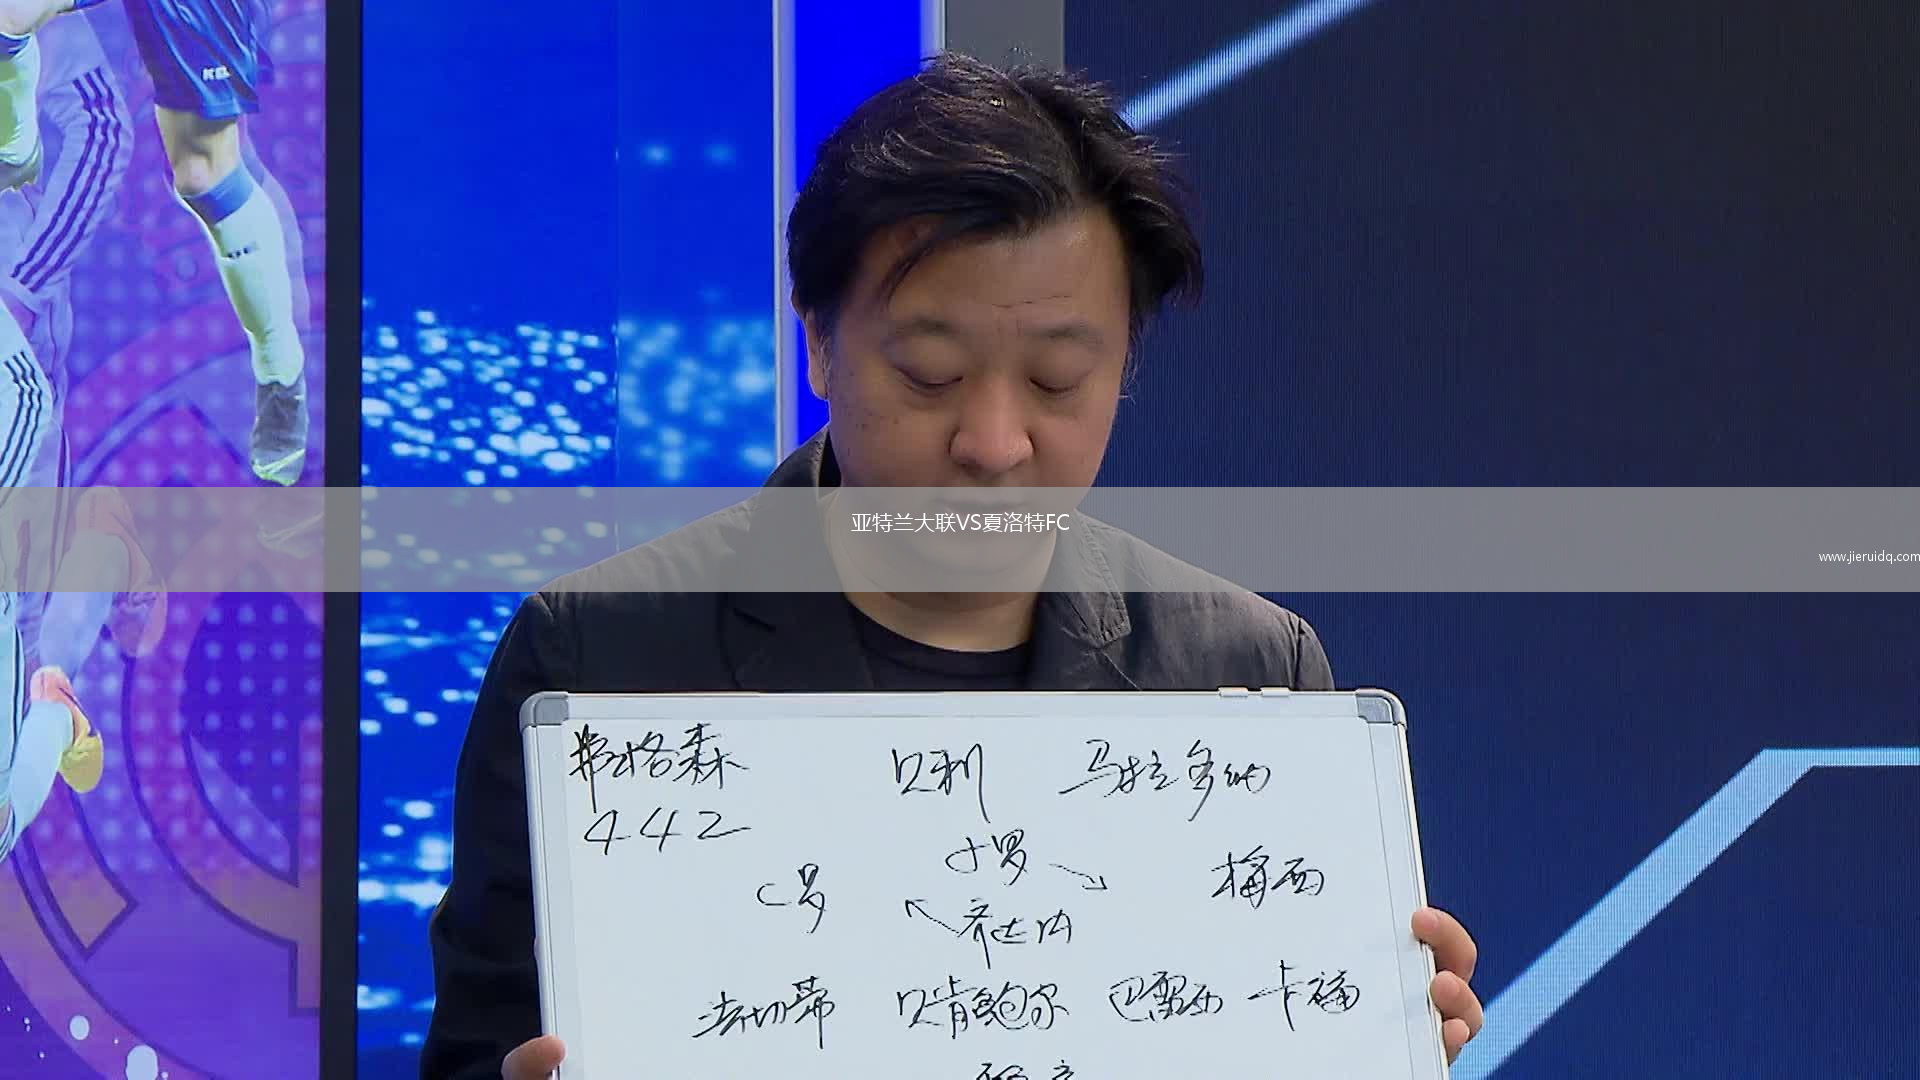 KELME
亚特兰大联VS夏洛特FC
www.jieruidq.com
弗格森 贝利 马拉多纳
442
C罗 小罗 梅西
齐达内
法切蒂 贝肯鲍尔 巴雷西 卡福